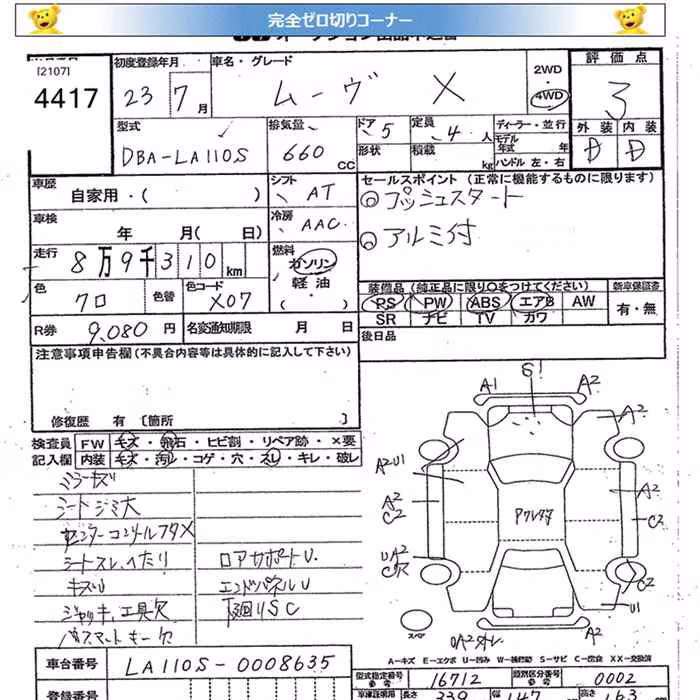 完全ゼロ切りコーナー
[2107]
4417
初度登録年月
23 7月
車名・グレード
ムーヴ X
2WD
・
4WD
評価点
3
外装 内装
D D
型式
DBA-LA110S
排気量
660 CC
ドア 5
形状
定員 4 人
積載 kg
ディーラー・並行
モデル年式 年
ハンドル 左・右
車歴
自家用・( )
シフト
AT
車検
年 月( 日)
冷房
AAC
走行
8万9千310km
燃料
ガソリン
軽油
・( )
色
クロ
色替
色コード
X07
R券 9,080 円
名変通知期限 月 日
セールスポイント (正常に機能するものに限ります)
◎プッシュスタート
◎アルミ付
装備品 (純正品に限り○をつけてください)
PS PW ABS エアB AW
SR ナビ TV カワ
新車保証書
有・無
後日品
注意事項申告欄(不具合内容等は具体的に記入して下さい)
修復歴 有 [箇所 ]
検査員記入欄
FW キズ・飛石・ヒビ割・リペア跡・×要
内装 キズ・汚レ・コゲ・穴・スレ・キレ・破レ
ミラーキズ
シートシミ大
センターコンソールフタX
シートスレ、ヘたり
キズU
ジャッキ、工具欠
パスマートキー欠
ロアサポートU
エンドパネルU
下廻りSC
S!
A1 A2
A2
A2U1
A2
C2
UA2
A2
C2
C2
U1
スペア
A-キズ E-エクボ U-凹み W-補修跡 S-サビ C-腐食 XX-交換済
車台番号
LA110S-0008635
型式指定番号
参考
16712
類別区分番号
参考
0002
登録番号
長さ
339
147
163